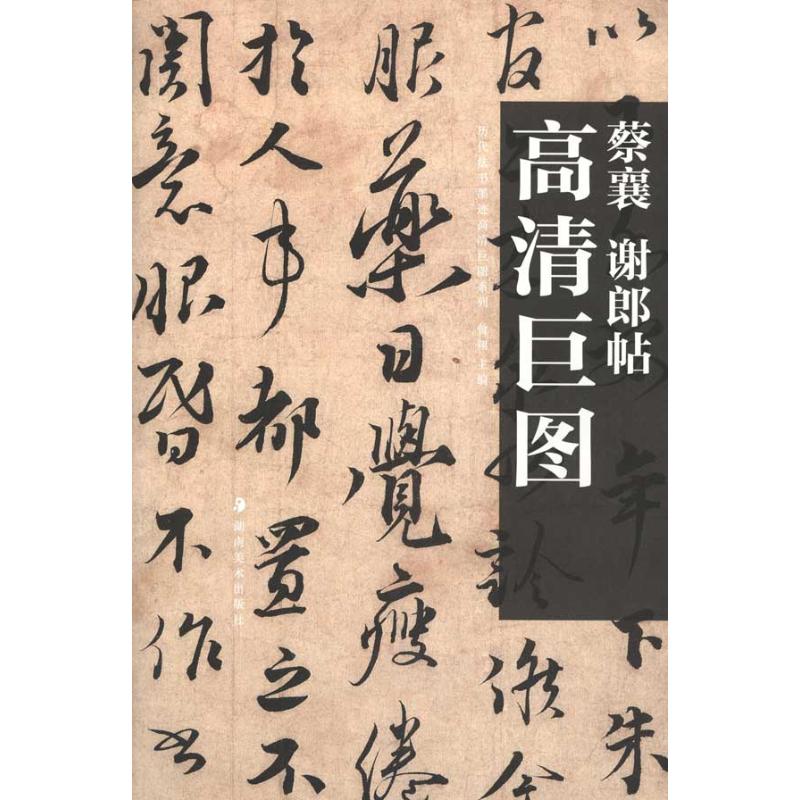 蔡襄 谢郎帖
高清巨图
历代法书墨迹高清巨图系列 主编
以 年下朱
官 診候今
服藥日覺瘦倦
於人事都置之不
関意眼昏不作書
湖南美术出版社